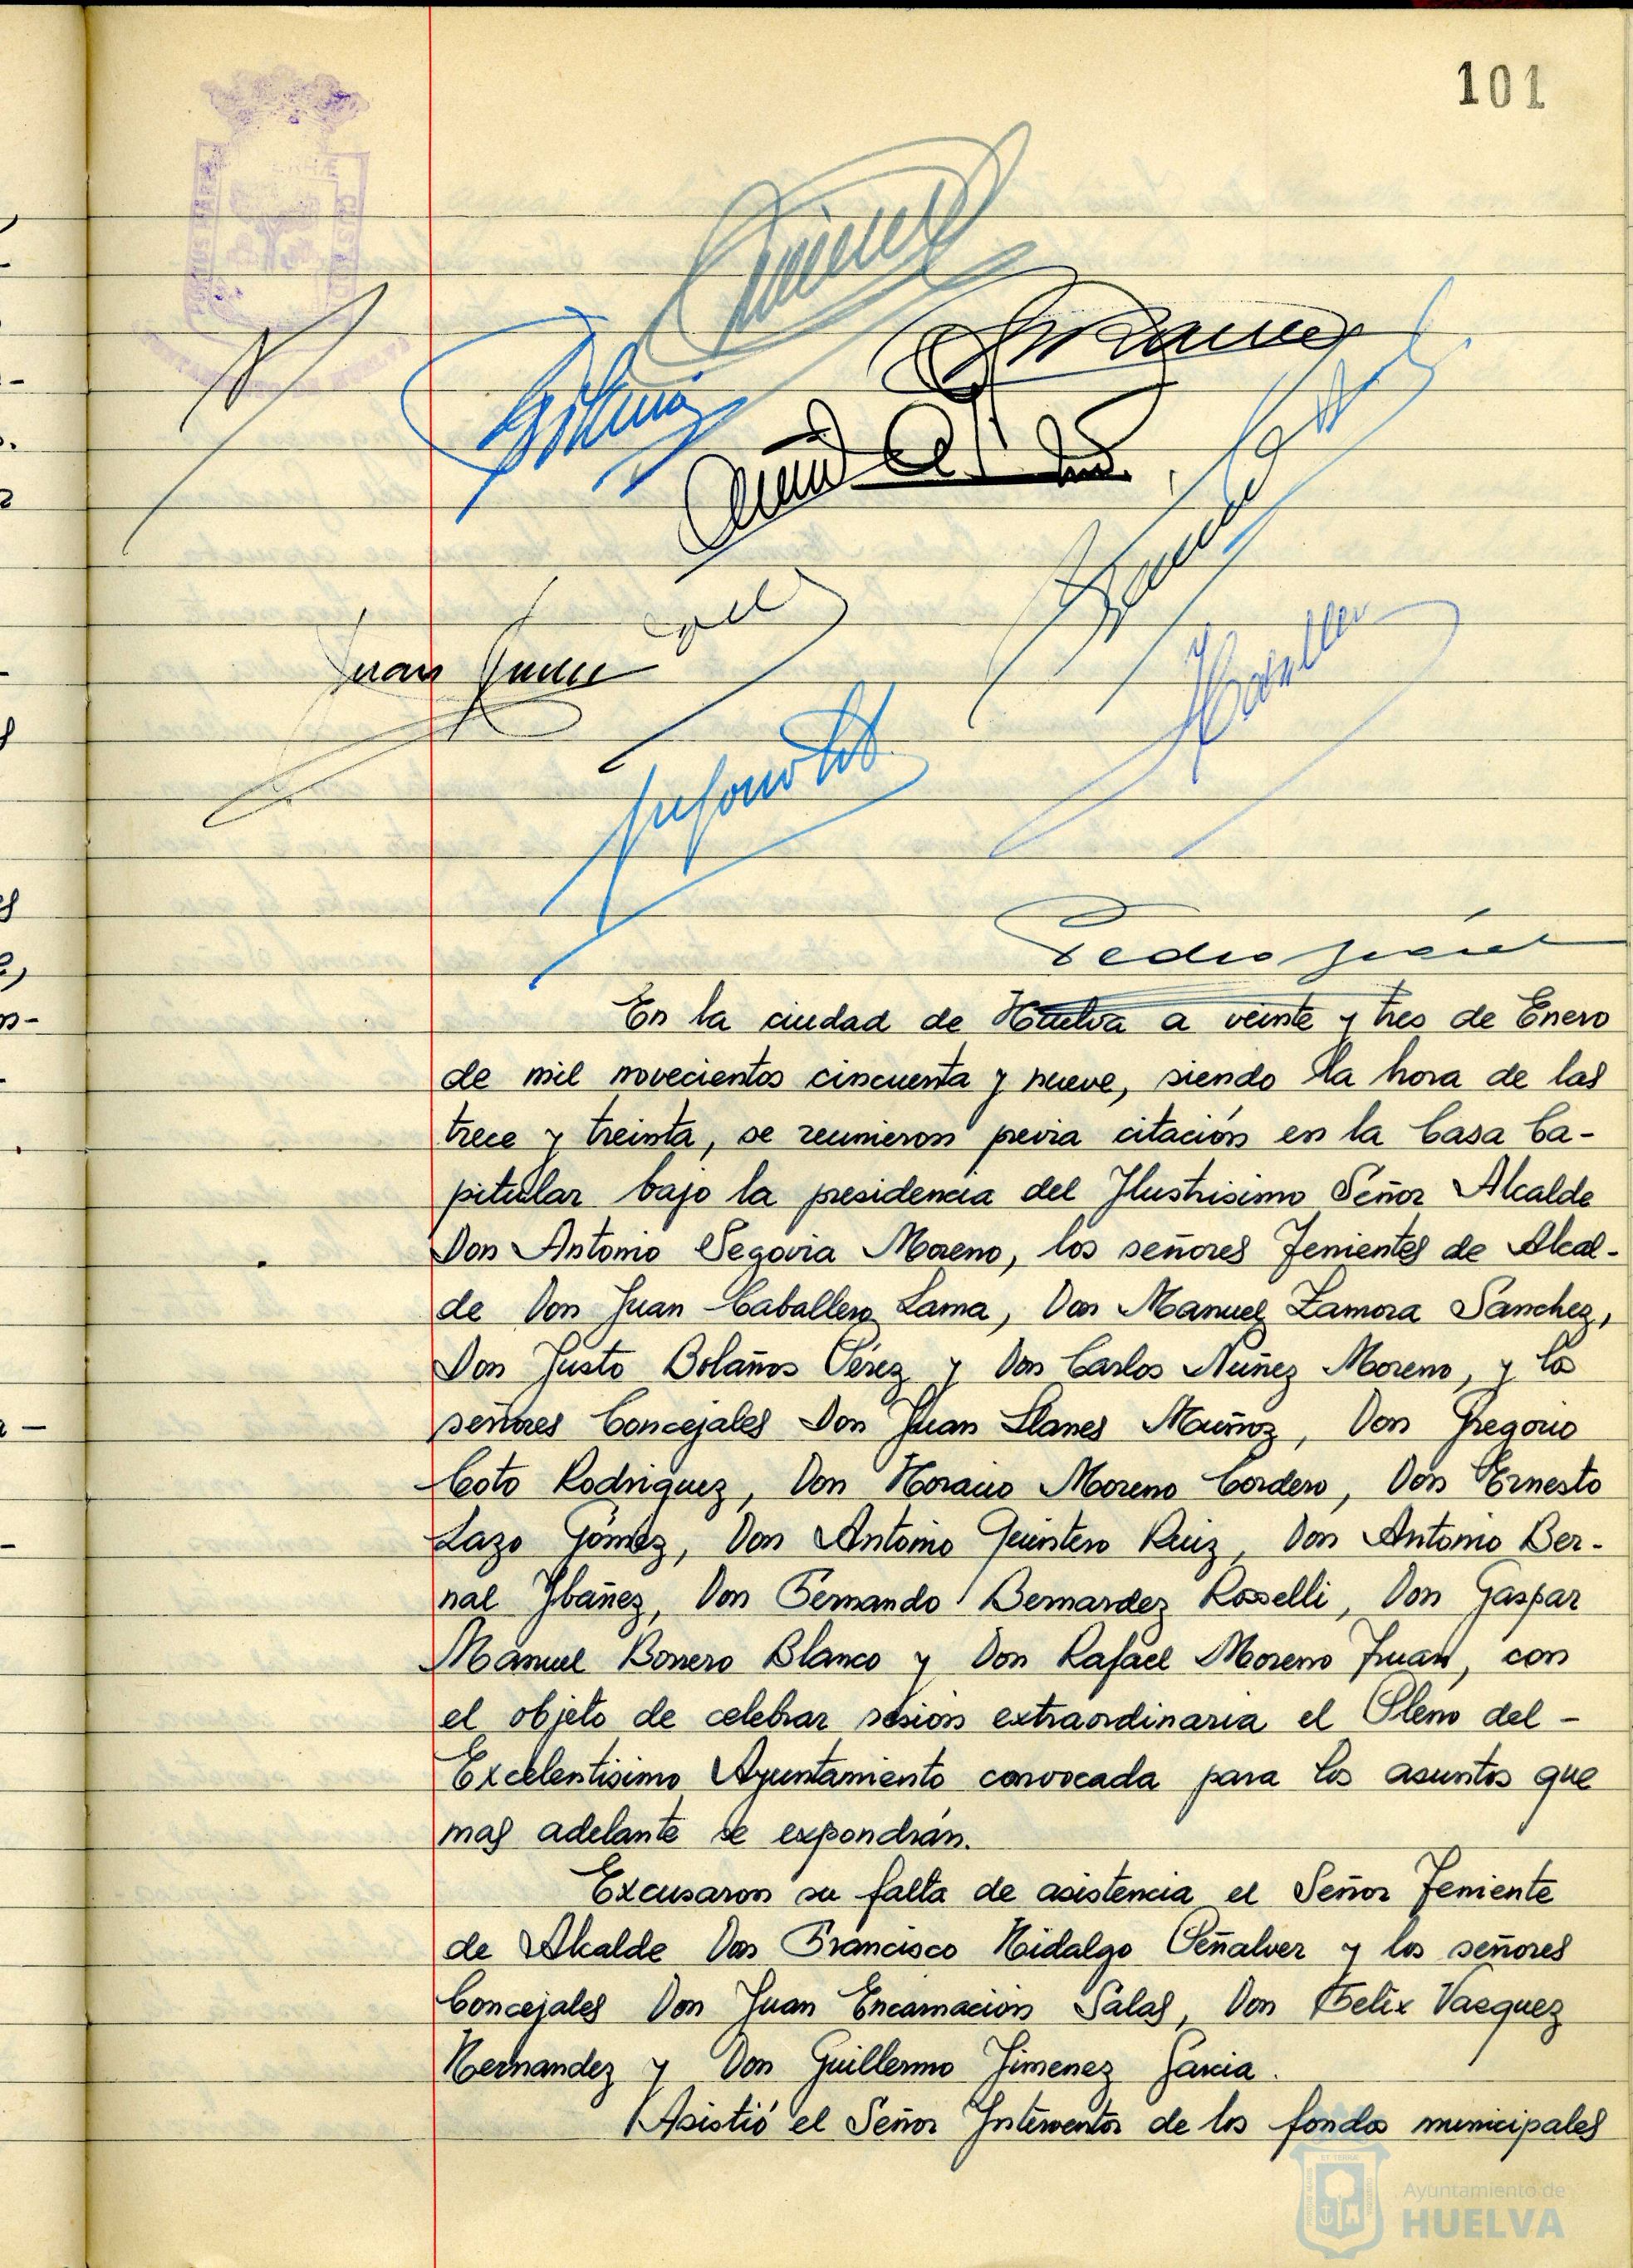 101
Juan
Pedro
En la ciudad de Huelva a veinte y tres de Enero
de mil novecientos cincuenta y nueve, siendo la hora de las
trece y treinta, se reunieron previa citación en la Casa Ca-
pitular bajo la presidencia del Ilustrisimo Señor Alcalde
Don Antonio Segovia Moreno, los señores Tenientes de Alcal-
de Don Juan Caballero Lama, Don Manuel Zamora Sanchez,
Don Justo Bolaños Pérez y Don Carlos Núñez Moreno, y los
señores Concejales Don Juan Llanes Muñoz, Don Gregorio
Coto Rodriguez, Don Horacio Moreno Cordero, Don Ernesto
Lazo Gómez, Don Antonio Quintero Ruiz, Don Antonio Ber-
nal Ybañez, Don Fernando Bernardez Rosselli, Don Gaspar
Manuel Borrero Blanco y Don Rafael Moreno Juan, con
el objeto de celebrar sesion extraordinaria el Pleno del -
Excelentisimo Ayuntamiento convocada para los asuntos que
mas adelante se expondrán.
Excusaron su falta de asistencia el Señor Teniente
de Alcalde Don Francisco Hidalgo Peñalver y los señores
Concejales Don Juan Encarnacion Salas, Don Felix Vazquez
Hernandez y Don Guillermo Jimenez Garcia.
Asistió el Señor Interventor de los fondos municipales
Ayuntamiento de
HUELVA